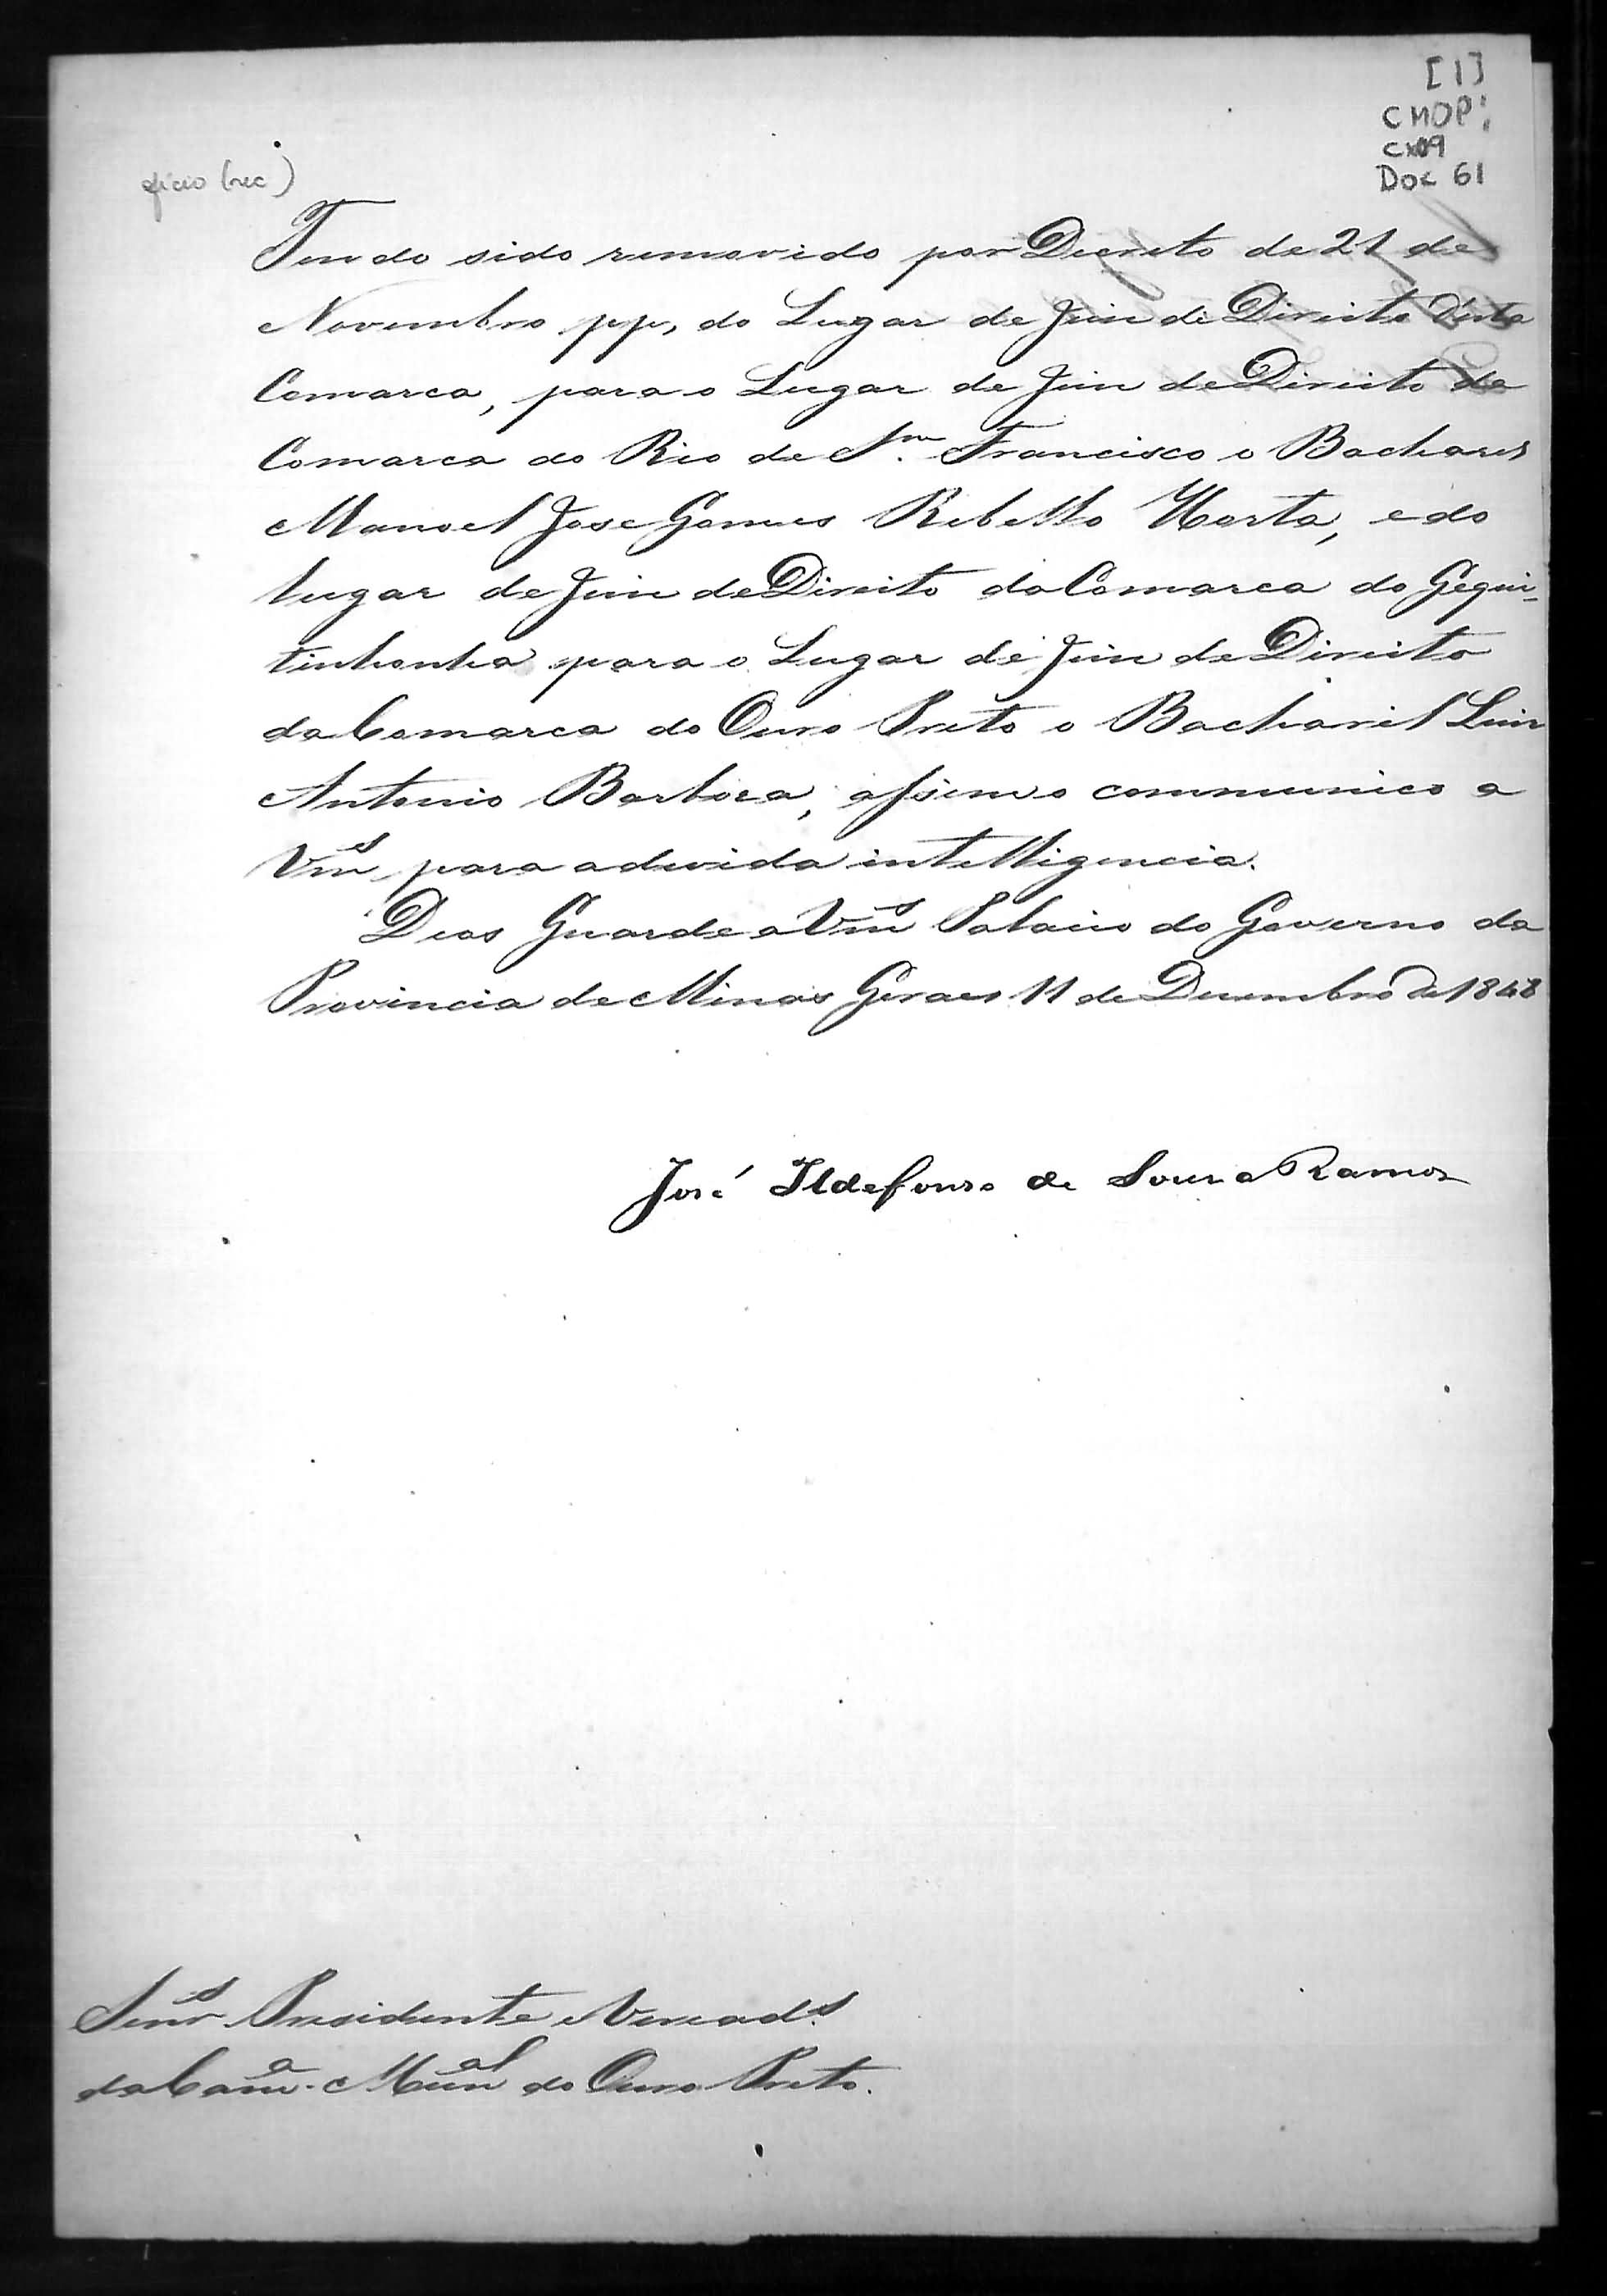 [1]
CMOP:
cx09
Doc 61
oficio (rec)
Tendo sido removido por Decreto de 21 de
Novembro pp, do Lugar de Juiz de Direito d'esta
Comarca, para o Lugar de Juiz de Direito da
Comarca do Rio de S.m Francisco o Bacharel
Manoel Jose Gomes Rebello Horta, e do
lugar de Juiz de Direito da Comarca do Gequi-
tinhonha para o Lugar de Juiz de Direito
da Comarca do Ouro Preto o Bacharel Luiz
Antonio Barboza, assim o communico a
Vmces para a devida intelligencia.
Deos Guarde a Vmces Palacio do Governo da
Provincia de Minas Geraes 11 de Dezembro de 1848
José Ildefonso de Souza Ramos
Senrs Presidente e Veread.s
da Cama. Munal do Ouro Preto.